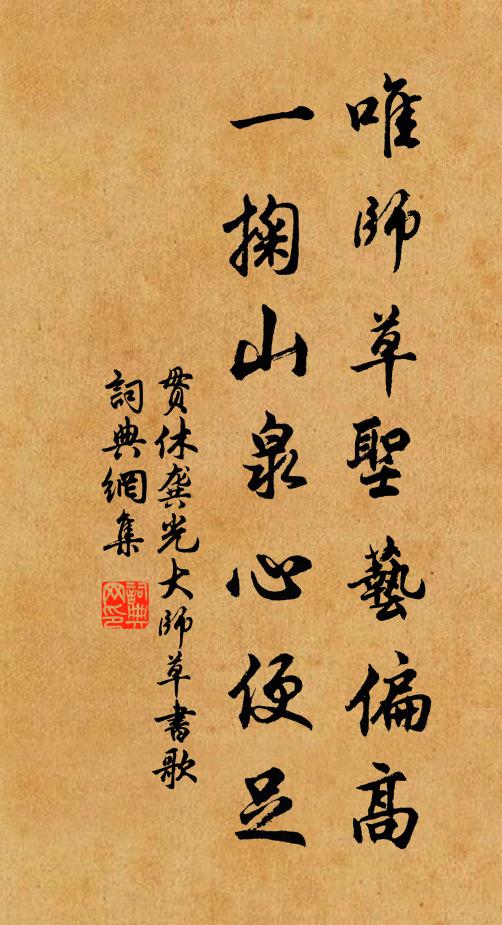 唯師草聖藝偏高
一掬山泉心便足
貫休龔光大師草書歌
詞典網集
詞典网印